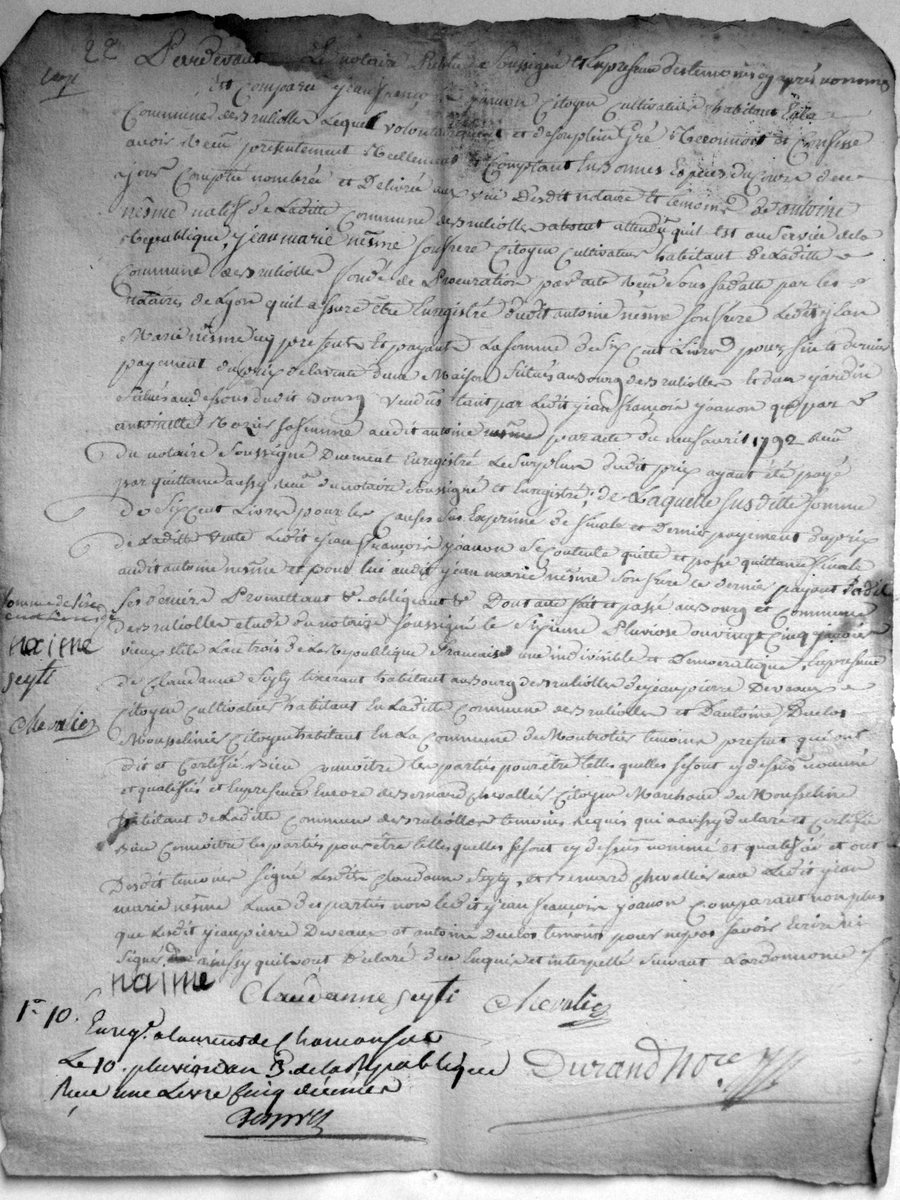 22e Pardevant Le notaire Public Soussigné et En presence des temoins cy après nommés
Est Comparu jean françois joanon Citoyen Cultivateur habitant En la
Commune de Brulliolles Lequel volontairement et de Son plein Gré a Reconnu et Confessé
avoir Reçu présentement Réellement et Comptant En Bonnes Espèces du Cours de ce
jour Comptée nombrée et Délivrée aux vüe Desdit notaire et témoins de antoine
nésme natif de Laditte Commune de Brulliolles absent attendu qu'il est au Service de la
République, jean marie nésme Son frere Citoyen Cultivateur habitant de Laditte
Commune de Brulliolles fondé de Procuration par acte Reçu Sous Sa datte par les
notaires de Lyon qu'il assure être Enregistré dudit antoine nésme Son frere Ledit jean
Marie nésme icy present et payant La Somme de Six Cent Livres pour fin et dernier
payement du prix de la vente d'une Maison Située au Bourg de Brulliolles et d'un jardin
Situé au dessous dudit Bourg Vendus tant par Ledit jean françois joanon que par
antoinette Sa femme audit antoine nésme par acte du neuf avril 1792 Reçu
du notaire Soussigné Duement Enregistré Le Surplus dudit prix ayant été payé
par quittance aussy Reçue du notaire Soussigné et Enregistrée; de Laquelle Susditte Somme
de Six Cent Livres pour les Causes Sus Exprimé de finale et Dernier payement du prix
de Laditte vente Ledit jean françois joanon Se Contente quitte et passe quittance finale
audit antoine nésme et pour lui audit jean marie nésme Son frere Ce dernier payant
Ses deniers Promettant &. obligeant &. Dont acte fait et passé au Bourg et Commune
de Brulliolles etude du notaire Soussigné le Sixieme Pluviose ou vingt Cinq janvier
vieux Stile L'an trois de La République Francaise une indivisible et Democratique, En presence
de Claudanne Seyty tixerant habitant au Bourg de Brulliolles de jean pierre Deveaux
Citoyen Cultivateur habitant En Laditte Commune de Brulliolles et D'antoine Duclos
Mousselinier Citoyen habitant En La Commune de Montrotier temoins present qui ont
dit et Certifié Bien Connoitre les parties pour être telles quelles Se Sont cy dessus nommé
et qualifiés et En presence Encore de Bernard Chevallier Citoyen Marchand de Mousseline
habitant de Laditte Commune de Brulliolles temoins Requis qui a aussy déclaré et Certifié
Bien Connoitre les parties pour être telles quelles Se Sont cy dessus nommé et qualifié et ont
Desdit temoins Signé Lesdits Claudanne Seyty, et Bernard Chevallier avec Ledit jean
marie nésme L'une des parties non Ledit jean françois joanon Comparant non plus
que Lesdit jean pierre Deveaux et antoine Duclos temoins pour ne pas Savoir Ecrire ni
Signer ainsy qu'ils ont Déclaré de ce Enquis et interpellé Suivant L'ordonnance
naime
Seyti
Chevalié
naime Claudanne Seyti Chevalié
1# 10.
Enreg. a Laurent de Chamousset
Le 10. pluviose an 3. de la République
Reçu une Livre Cinq deniers
Durand Nore